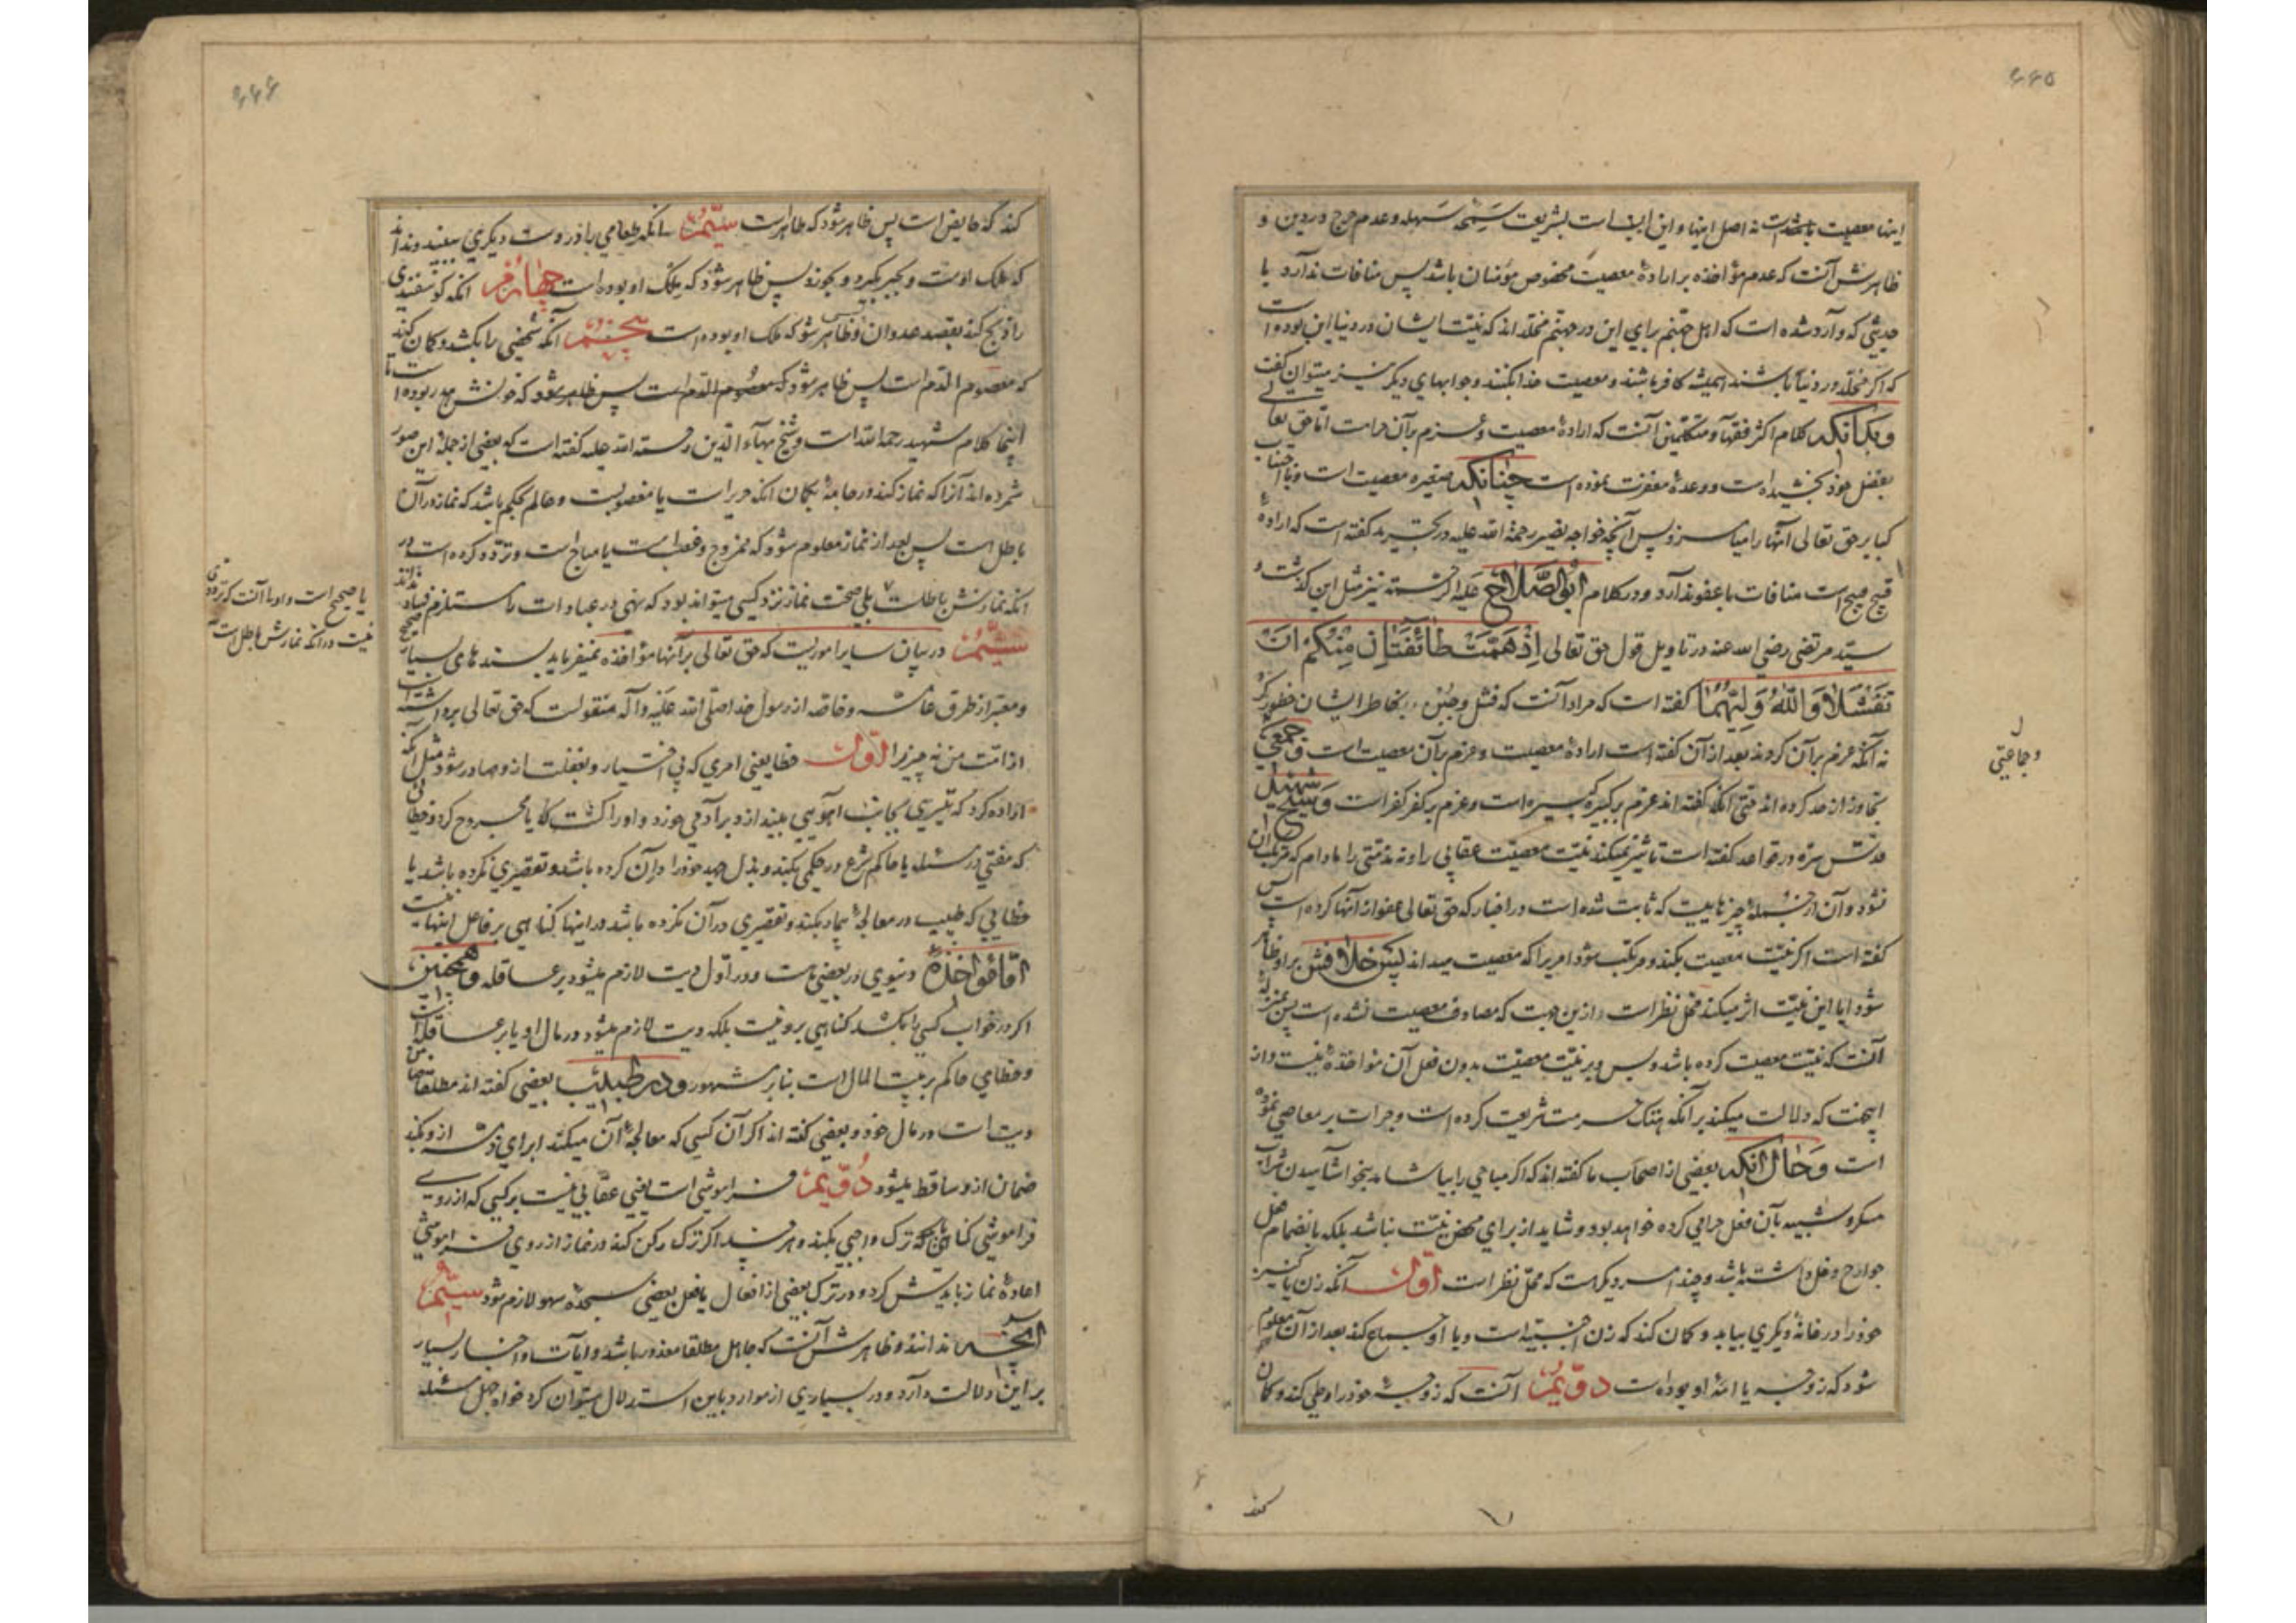 ۶۶۵
اینها معصیت باشد نه اصل اینها و این انسب است بشریعت سمحه سهله و عدم حرج در دین و
ظاهرش آنست که عدم مؤاخذه بر ارادهٔ معصیت مخصوص مؤمنان باشد پس منافات ندارد با
حدیثی که وارد شده است که اهل جهنم برای این در جهنم مخلد اند که نیت ایشان در دنیا این بوده است
که اگر مخلد در دنیا باشند همیشه کافر باشند و معصیت خدا بکنند و جوابهای دیگر نیز میتوان گفت
و بدانکه کلام اکثر فقها و متکلمین آنست که ارادهٔ معصیت و عزم بر آن حرامست اما حق تعالی
بفضل خود بخشیده است و وعدهٔ مغفرت نموده است چنانکه صغیره معصیت است و با اجتناب
کبایر حق تعالی آنها را میامرزد پس آنچه خواجه نصیر رحمة الله علیه در تجرید گفته است که ارادهٔ
قبیح قبیح است منافات با عفو ندارد و در کلام ابو الصلاح علیه الرحمه نیز مثل این گذشت و
سید مرتضی رضی الله عنه در تاویل قول حق تعالی اذ همت طائفتان منکم ان
تفشلا و الله ولیهما گفته است که مراد آنست که فشل و جبن بخاطر ایشان خطور کرد
نه آنکه عزم بر آن کردند بعد از آن گفته است ارادهٔ معصیت و عزم بر آن معصیت است و جمعی
تجاوز از حد کرده اند حتی آنکه گفته اند عزم بر کبیره کبیره است و عزم بر کفر کفر است و شیخ شهید
قدس سره در قواعد گفته است تاثیر نمیکند نیت معصیت عقابی را و نه مذمتی را مادام که مرتکب آن
نشود و آن از جملهٔ چیزهاییست که ثابت شده است در اخبار که حق تعالی عفو از آنها کرده است پس
گفته است اگر نیت معصیت بکند و مرتکب شود امریرا که معصیت میداند پس خلافش بر او ظاهر
شود ایا این نیت اثر میکند محل نظر است از این جهت که مصادف معصیت نشده است پس بمنزلهٔ
آنست که نیت معصیت کرده باشد و بس و بر نیت معصیت بدون فعل آن مؤاخذه نیست و از
اینجهت که دلالت میکند بر آنکه هتک حرمت شریعت کرده است و جرات بر معاصی نموده
است و حال آنکه بعضی از اصحاب ما گفته اند که اگر مباحی را بیاشامد بنحو آشامیدن شراب
مسکر و شبیه بآن فعل حرامی کرده خواهد بود و شاید از برای محض نیت نباشد بلکه بانضمام فعل
جوارح دخل داشته باشد و چند امر دیگر است که محل نظر است اول آنکه زن یا کنیز
خود را در خانهٔ دیگری بیابد و گمان کند که زن اجنبیه است و با او جماع کند بعد از آن معلوم
شود که زوجه یا امهٔ او بوده است دویم آنست که زوجهٔ خود را وطی کند و گمان
و جماعتی
کند
۶۶۶
کند که حایض است پس ظاهر شود که طاهر است سیم آنکه طعامی را در دست دیگری ببیند و نداند
که ملک اوست و بجبر بگیرد و بخورد پس ظاهر شود که ملک او بوده است چهارم آنکه گوسفندی
را ذبح کند بقصد عدوان و ظاهر شود که ملک او بوده است پنجم آنکه شخصی را بکشد و گمان کند
که معصوم الدم است پس ظاهر شود که خونش هدر بوده است تا
اینجا کلام شهید رحمه الله است و شیخ بهاء الدین رحمة الله علیه گفته است که بعضی از جملهٔ این صور
شمرده اند آنرا که نماز کند در جامهٔ بگمان آنکه حریر است یا مغصوبست و عالم بحکم باشد که نماز در آن
باطل است پس بعد از نماز معلوم شود که ممزوج است یا مباح است و تردد کرده است در
آنکه نمازش باطلست بلی صحت نماز نزد کسی میتواند بود که نهی در عبادات را مستلزم فساد نداند
یا صحیح است و اولی آنست که تردد
نیست در آنکه نمازش باطل است
سیم در بیان سایر اموریست که حق تعالی بر آنها مؤاخذه نمیفرماید بسندهای بسیار صحیح
و معتبر از طرق عامه و خاصه از رسول خدا صلی الله علیه و آله منقولست که حق تعالی برداشته است
از امت من نه چیز را اول خطا یعنی امری که بی اختیار و بغفلت از و صادر شود مثل آنکه
اراده کرد که تیری بجانب آهویی بیندازد بر آدمی خورد و او را کشت یا مجروح کرد و خطائی
که مفتی در مسئله یا حاکم شرع در حکمی بکند و بذل جهد خود را در آن کرده باشد و تقصیری نکرده باشد یا
خطایی که طبیب در معالجهٔ بیمار بکند و تقصیری در آن نکرده باشد در اینها گناهی بر فاعل اینها نیست
اما مؤاخذهٔ دنیوی در بعضی هست و در اول دیت لازم میشود بر عاقله و همچنین
اگر در خواب کسی را بکشد گناهی بر و نیست بلکه دیت لازم میشود در مال او یا بر عاقله است
و خطای حاکم بر بیت المال است بنا بر مشهور و در طبیب بعضی گفته اند مطلقا ضامن
دیت است در مال خود و بعضی گفته اند اگر آن کسی که معالجهٔ آن میکند ابرای ذمه از و بکند
ضمان از و ساقط میشود دویم فراموشی است یعنی عقابی نیست بر کسی که از روی
فراموشی گناهی یا ترک واجبی بکند و هر چند اگر ترک رکن کند در نماز از روی فراموشی
اعادهٔ نماز بایدش کرد و در ترک بعضی از افعال یا فعل بعضی سجدهٔ سهو لازم شود سیم
آنچه ندانند و ظاهرش آنست که جاهل مطلقا معذور باشد و آیات و اخبار بسیار
بر این دلالت دارد و در بسیاری از موارد باین استدلال میتوان کرد خواه جهل مسئله